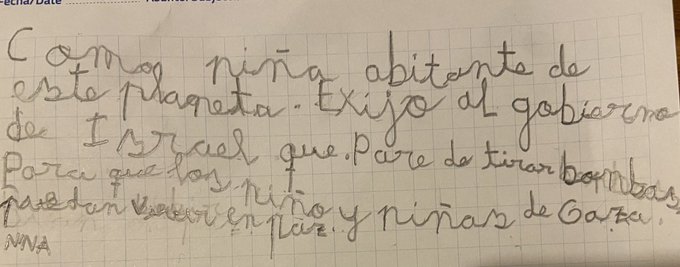 Fecha/Date
Como niña abitante de
este planeta. Exijo al gobierno
de Israel que. Pare de tirar bombas
Para que los niño y niñas de Gaza.
puedan en paz.
NNA